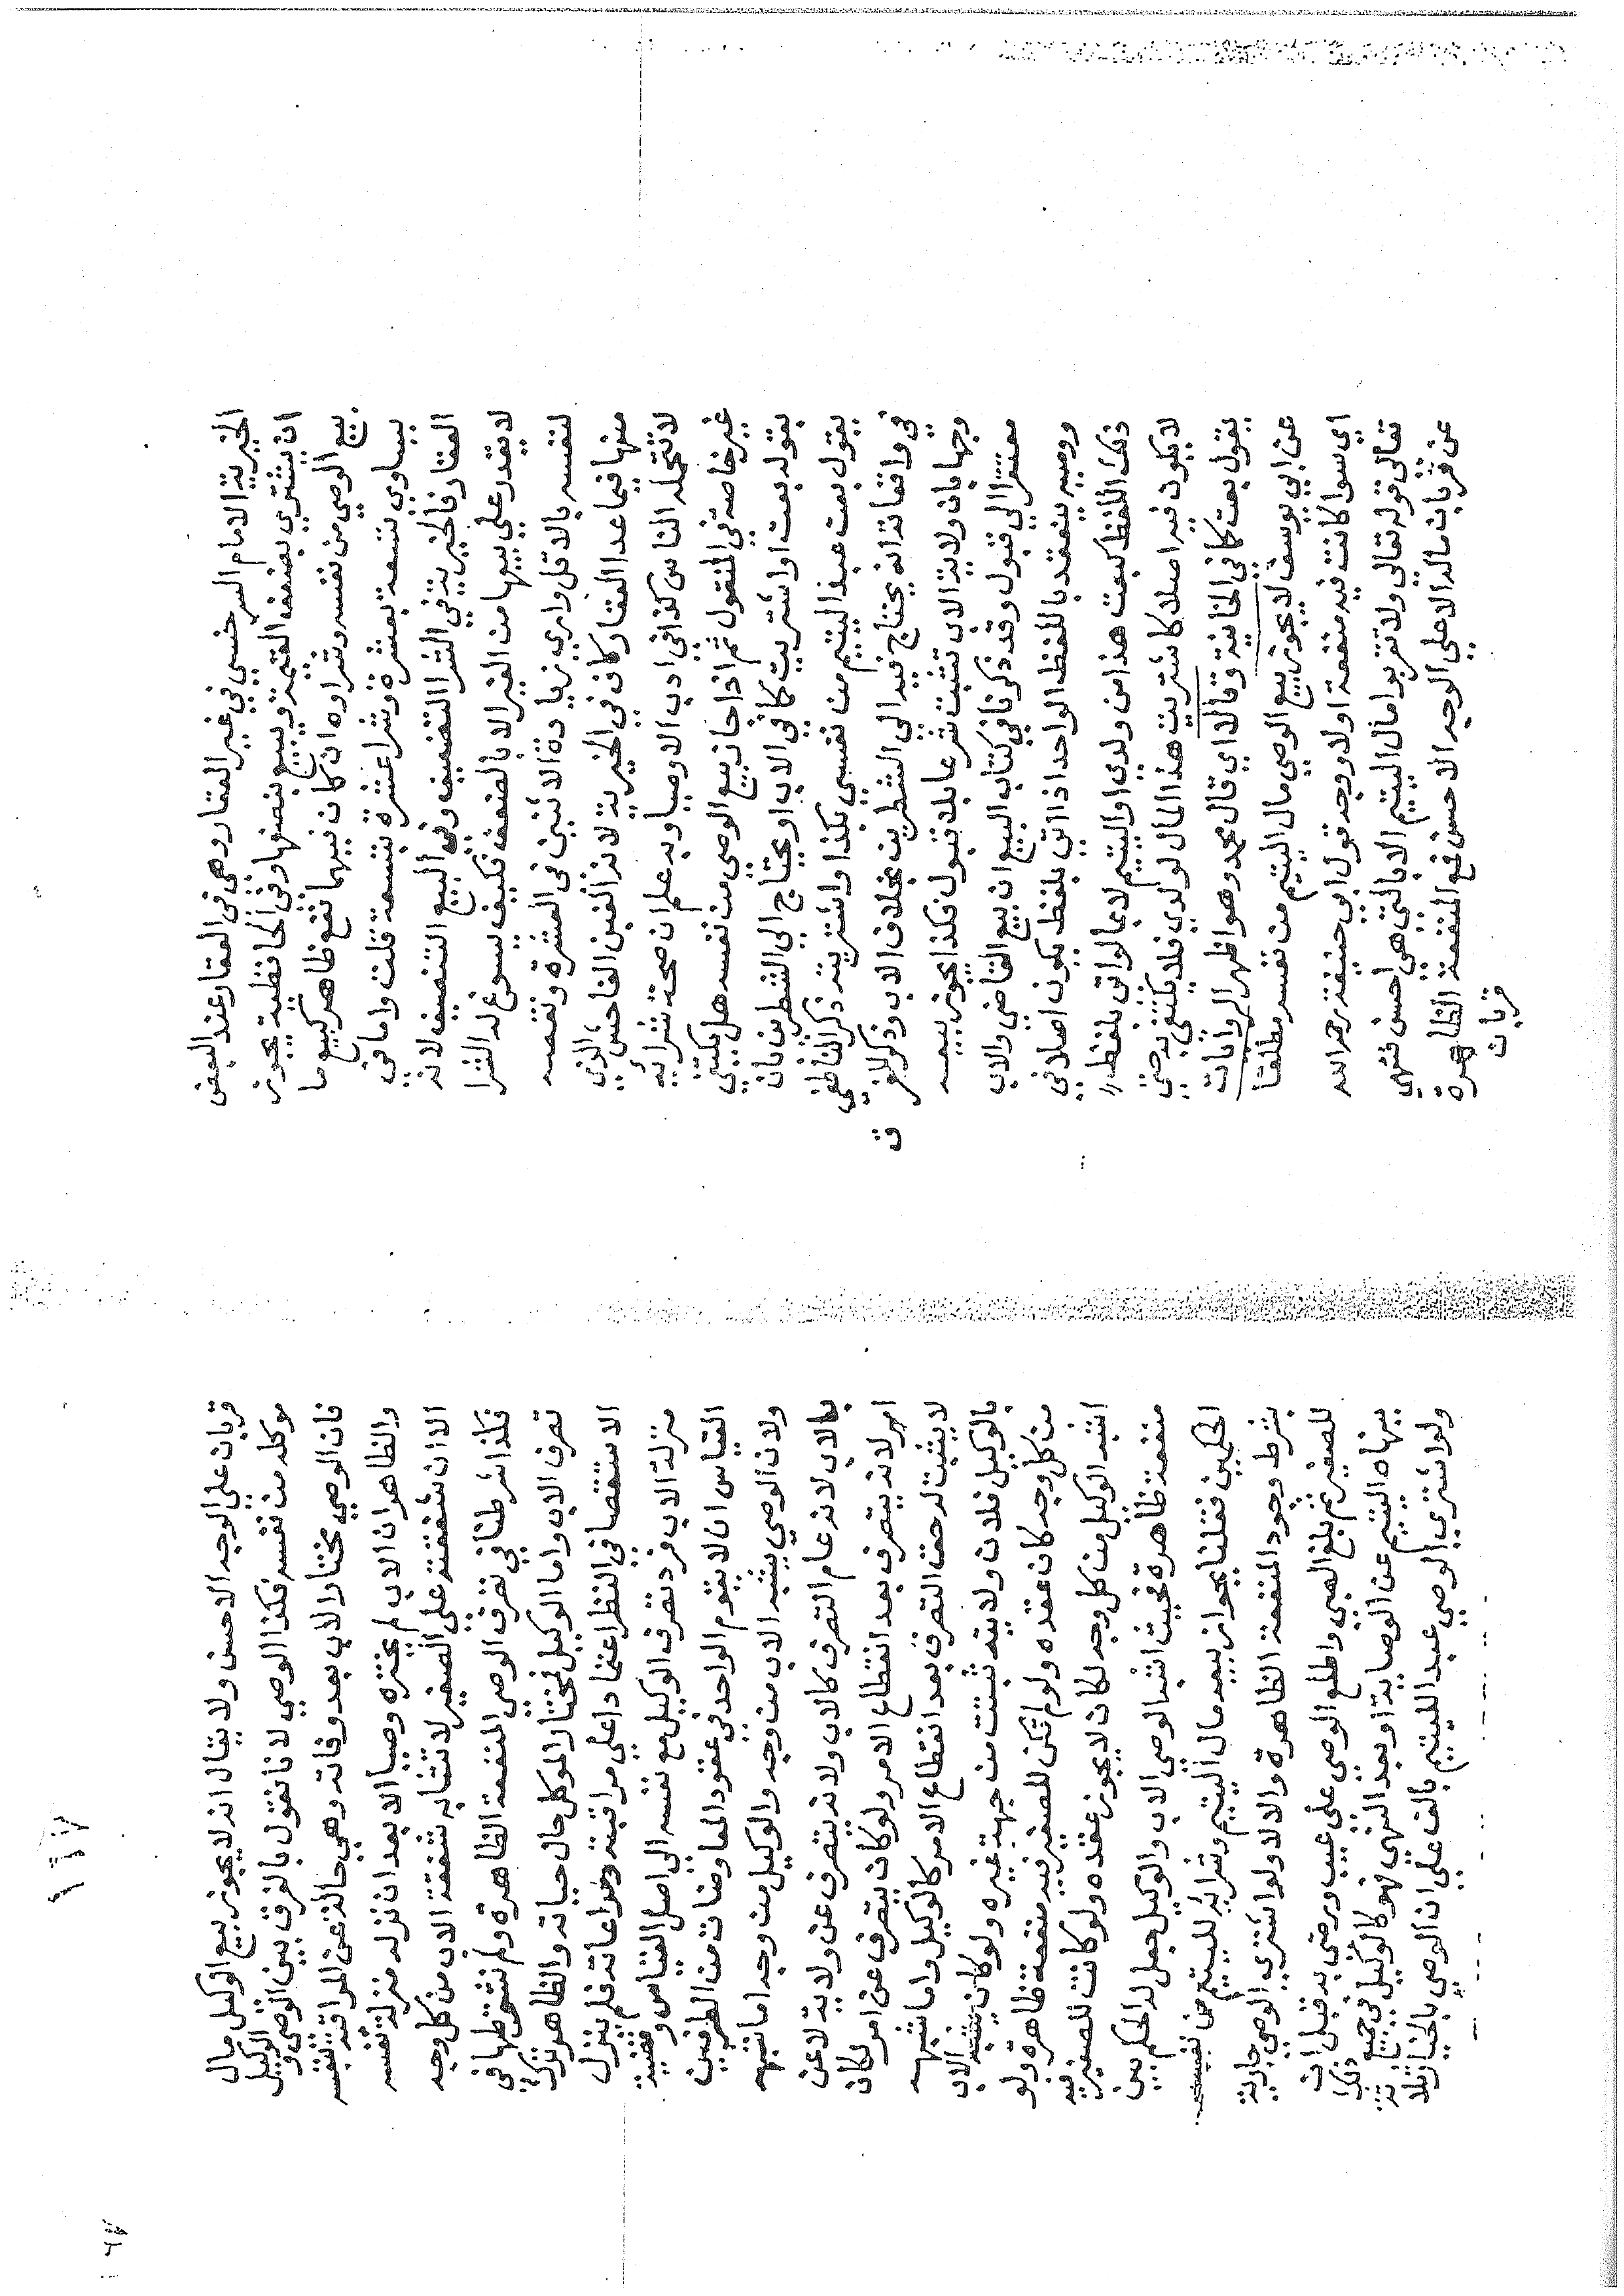 الخيرية الامام السرخسي في غير العقار وهي في العقار عند البعض
ان يشتري بضعف القيمة ويبيع بنصفها وفي الحافظية يجوز
بيع الوصي من نفسه وشراوه ان كان فيهما نفع ظاهر كبيع ما
يساوي تسعة بعشرة وشرا عشرة بتسعة قلت واما في
العقار فالخيرية في الشرا التضعيف وفي البيع التنصيف لانه
لا يقدر علي بيعها من الغير الا بالضعف فكيف يسوغ له الشرا
لنفسه بالاقل واري زيادة الاثنين في العشرة ونقصه
منها فيما عدا العقار كاف في الخيرية لانه الغبن الفاحش الذي
لا تتحمله الناس كذا في ادب الاوصيا وبه علم ان صحة شرائه
غير خاصة في المنقول ثم اذا جاز بيع الوصي من نفسه هل يكتفي
بقوله بعت او اشتريت كما في الاب او يحتاج الي الشطرين بان
يقول بعت عبد اليتيم من نفسي بكذا واشتريته ذكر الناطفي
في واقعاته انه يحتاج فيه الى الشطرين بخلاف الاب وذكر للفرق
وجها بان ولاية الاب تثبت شرعا بلا قبول فكذا يجوز بيعه
مفتقرا الى قبول وقد ذكرنا في كتاب البيع ان بيع القاضي والاب
ووصيه ينعقد باللفظ الواحد اذا اتى بلفظ يكون اصلا في
ذلك اللفظ كبعت هذا من ولدي او اليتيم لا بما لو اتى بلفظ
لا يكون فيه اصلا كاشتريت هذا المال لولدي فلا يكتفى به حتي
يقول بعت كما في الخانية وقالا اي قال محمد وهو اظهر الروايات
عن ابي يوسف لا يجوز بيع الوصي مال اليتيم من نفسه مطلقا
اي سوا كانت فيه منفعة اولا ووجه قول ابي حنيفة رحمه الله
تعالى قوله تعالى ولا تقربوا مال اليتيم الا بالتي هي احسن فنهي
عن قربان ماله الا علي الوجه الاحسن فمع المنفعة الظاهرة
قربان
قربان علي الوجه الاحسن ولا يقال انه لا يجوز بيع الوكيل مال
موكله من نفسه فكذا الوصي لانا نقول بالفرق بين الوصي والوكيل
فان الوصي مختار الاب بعد وفاته وهي حالة عن المراقبة بنفسه
والظاهر ان الاب لم يختره وصيا الا بعد ان نزله منزلة نفسه
الا ان شفقته على الصغير لا تشابه شفقة الاب من كل وجه
فكذا شرطنا في تصرف الوصي المنفعة الظاهرة ولم نشترطها في
تصرف الاب واما الوكيل فمختار الموكل حال حياته والظاهر تركه
الاستقصا في النظر اعتمادا علي مراقبته ومراعاته فلم ينزل
منزلة الاب فرد تصرف الوكيل مع نفسه الى اصل القياس وقضية
القياس ان لا يقوم الواحد في عقود المعاوضات من الطرفين
ولان الوصي يشبه الاب من وجه والوكيل من وجه اما شبهه
بالاب لانه عام التصرف كالاب ولانه يتصرف عن ولاية لا عن
امر لانه يتصرف بعد انقطاع الامر ولو كان يتصرف عن امر لكان
لا يثبت له حق التصرف بعد انقطاع الامر كالوكيل واما شبهه
بالوكيل فلان ولايته ثبتت من جهة غيره ولو كان يشبه الاب
من كل وجه كان عقده ولو لم تكن للصغير فيه منفعة ظاهرة ولو
اشبه الوكيل من كل وجه لكان لا يجوز عقده ولو كانت للصغير فيه
منفعة ظاهرة فحيث اشبه الوصي الاب والوكيل جعل له الحكم بين
الحكمين فقلنا يجواز بيعه مال اليتيم وشرائه لليتيم من نفسه
بشرط وجود المنفعة الظاهرة والا لا ولو اشترى الوصي جارية
للصغير ثم بلغ الصبي واطلع الوصي على عيب ورضي به قبل ان
ينهاه اليتيم عن الوصاية او بعد النهي فهو كالوكيل في جميع ذلك
ولو اشتري الوصي عبد اليتيم بالف علي ان الوصي بالخيار ثلاثة